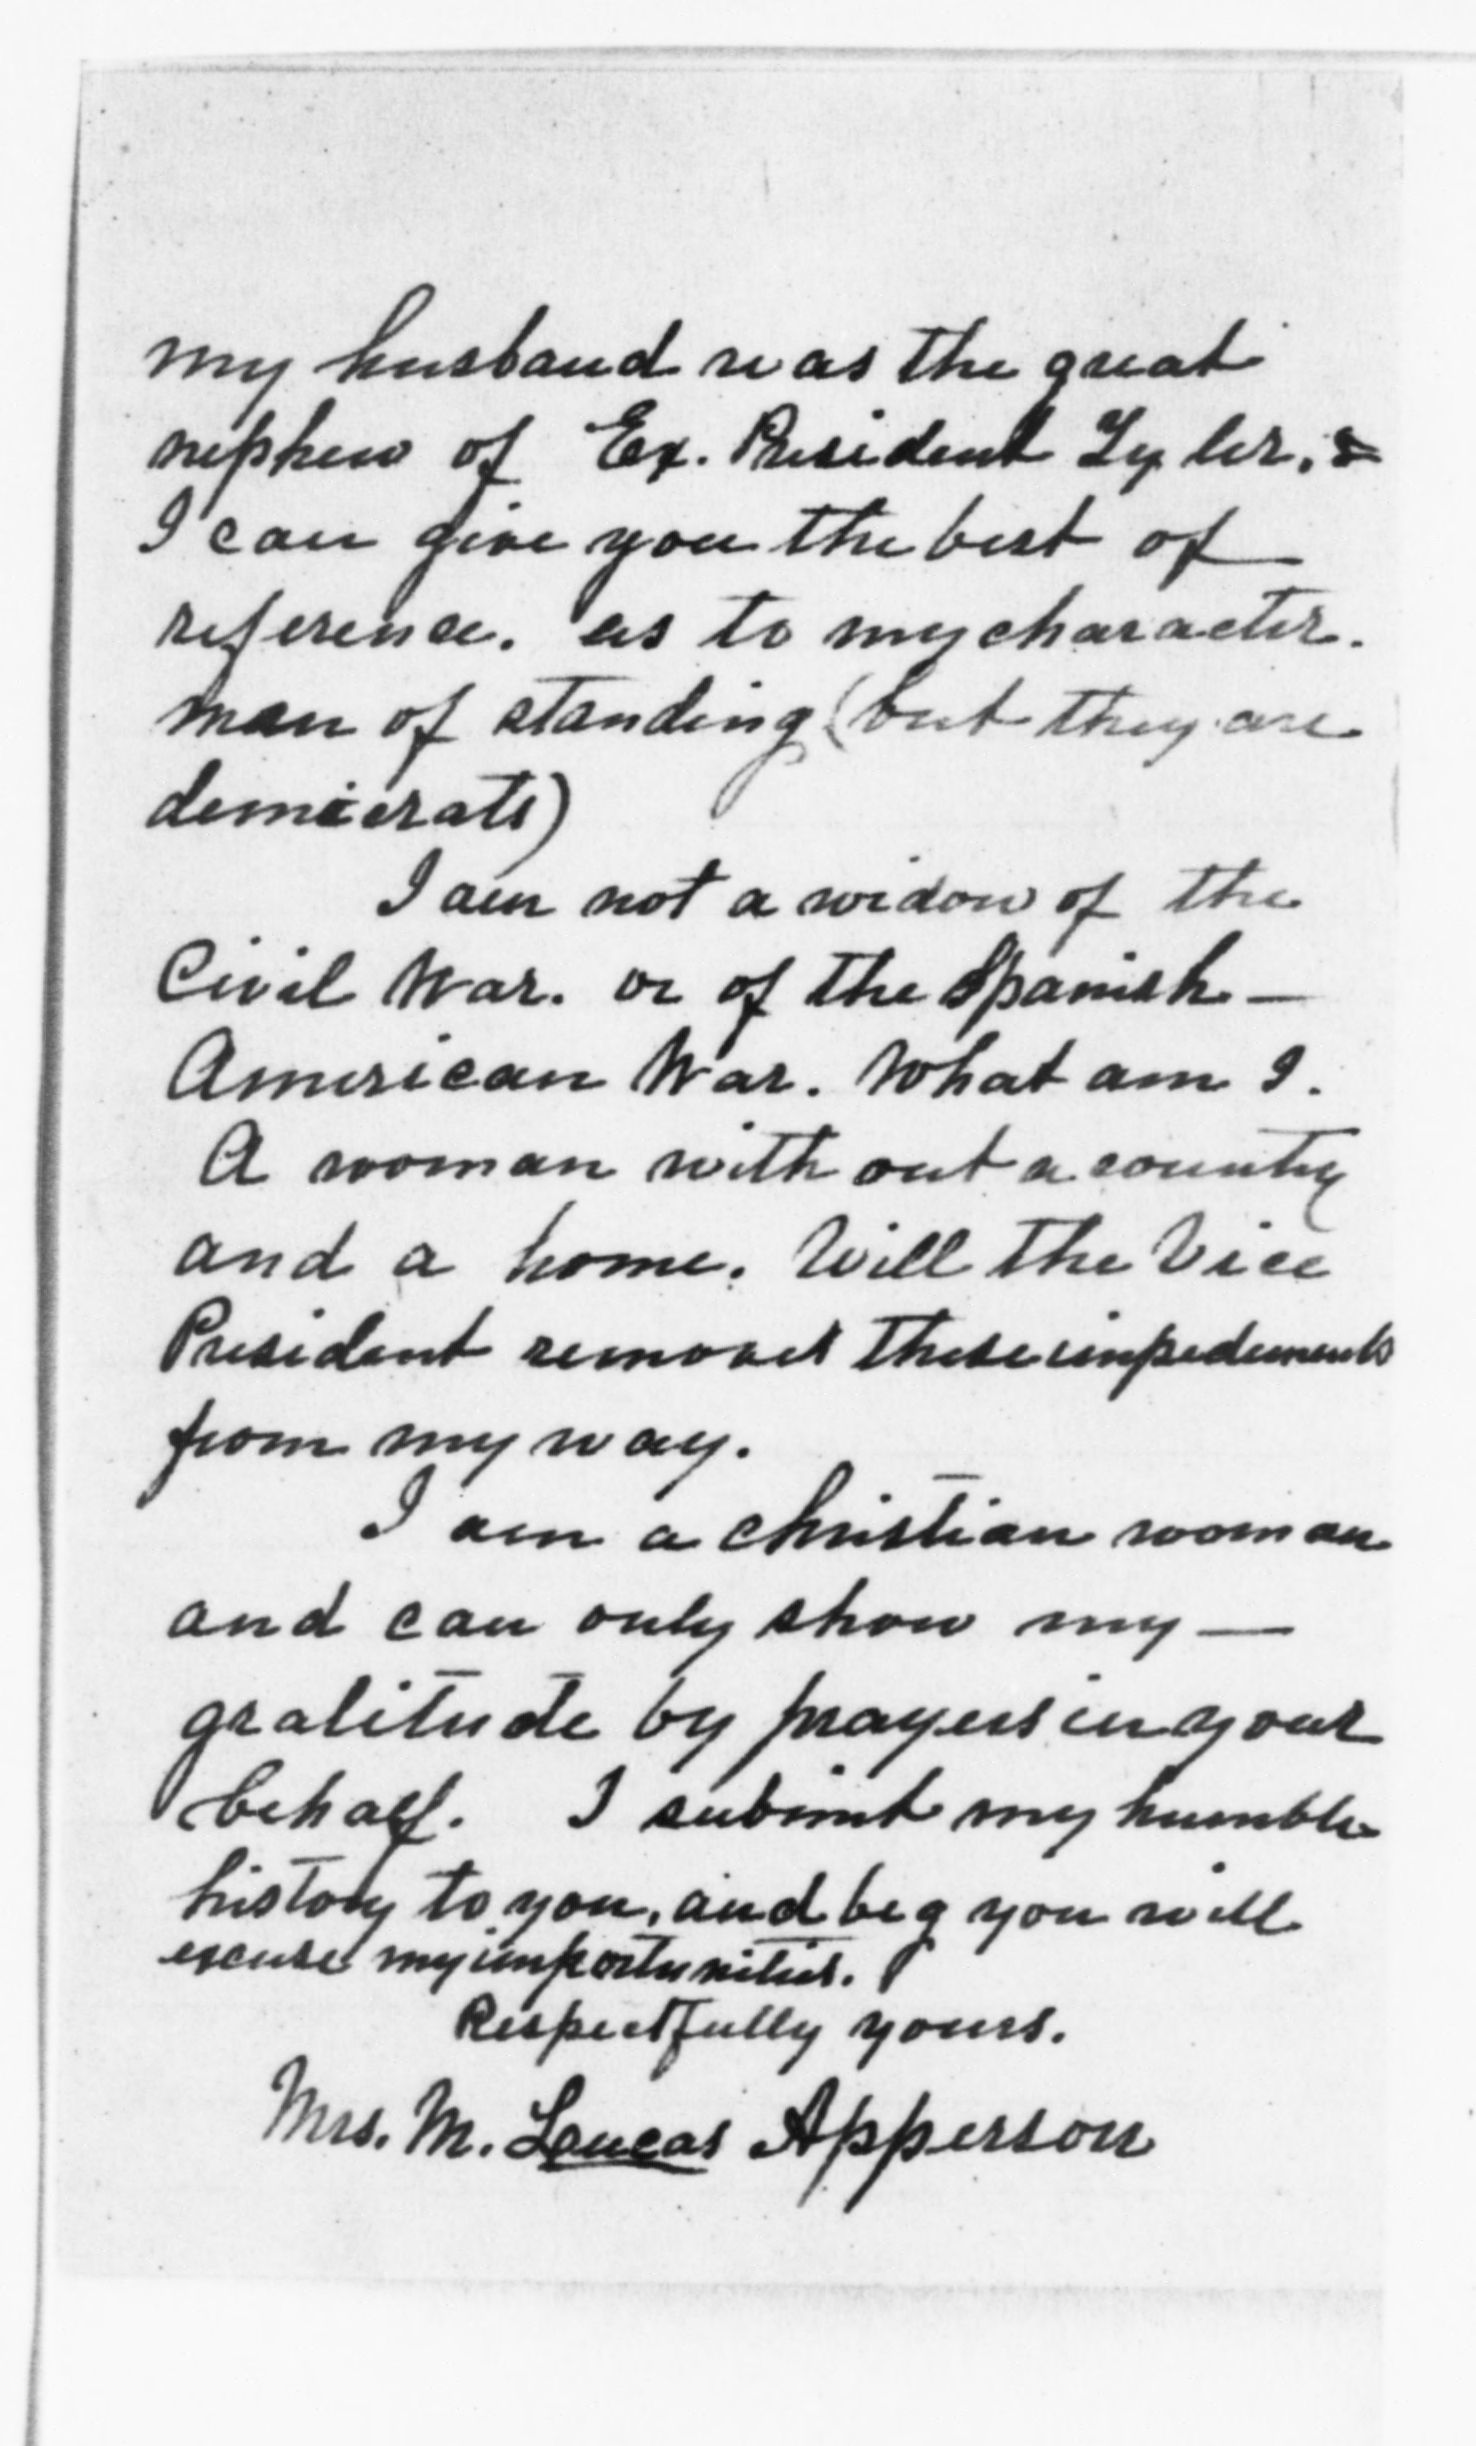 my husband was the great
nephew of Ex. President Tyler, &
I can give you the best of
reference. as to my character.
man of standing (but they are
demicrats)
I am not a widow of the
Civil War. or of the Spanish —
American War. What am I.
A woman with out a country
and a home. Will the Vice
President remover these impediments
from my way.
I am a christian woman
and can only show my —
gratitude by prayers in your
behalf. I submit my humble
history to you, and beg you will
excuse my importunities.
Respectfully yours.
Mrs. M. Loucas Apperson